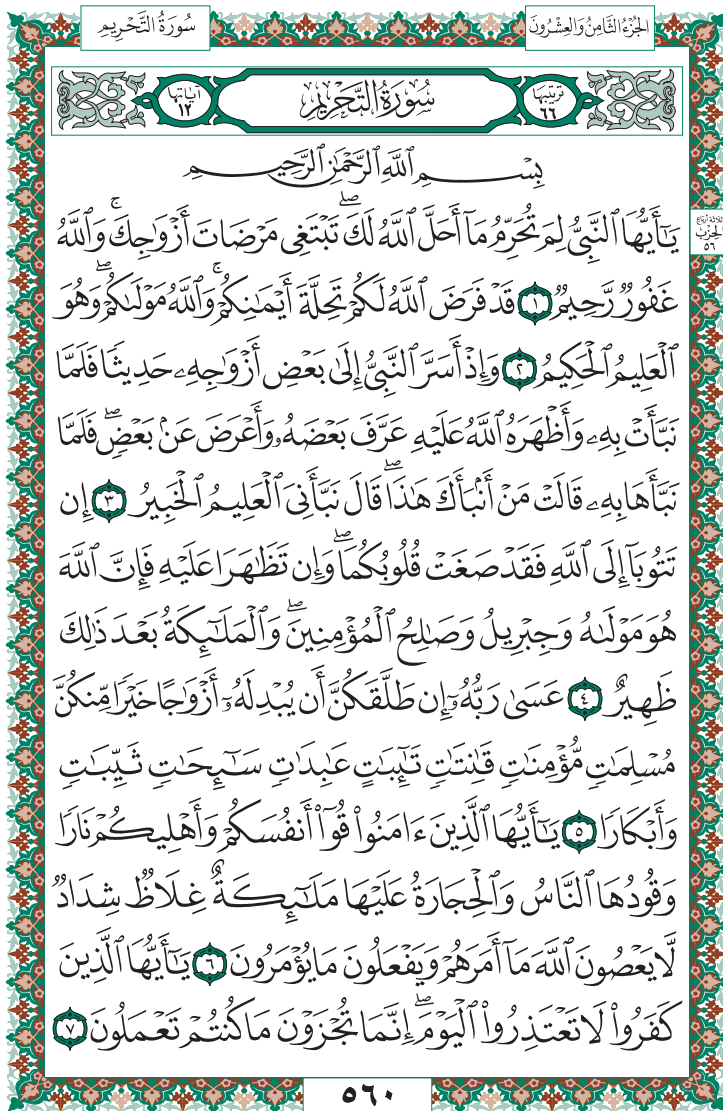 الجُزْءُ الثَّامِنُ وَالعِشْرُونَ
سُورَةُ التَّحْرِيمِ
ترتيبها ٦٦ سُورَةُ التَّحْرِيمِ آياتها ١٢
بِسْمِ ٱللَّهِ ٱلرَّحْمَٰنِ ٱلرَّحِيمِ
يَٰٓأَيُّهَا ٱلنَّبِىُّ لِمَ تُحَرِّمُ مَآ أَحَلَّ ٱللَّهُ لَكَ ۖ تَبْتَغِى مَرْضَاتَ أَزْوَٰجِكَ ۚ وَٱللَّهُ
ثلاثة أرباع الحزب ٥٦
غَفُورٌ رَّحِيمٌ ١ قَدْ فَرَضَ ٱللَّهُ لَكُمْ تَحِلَّةَ أَيْمَٰنِكُمْ ۚ وَٱللَّهُ مَوْلَىٰكُمْ ۖ وَهُوَ
ٱلْعَلِيمُ ٱلْحَكِيمُ ٢ وَإِذْ أَسَرَّ ٱلنَّبِىُّ إِلَىٰ بَعْضِ أَزْوَٰجِهِۦ حَدِيثًا فَلَمَّا
نَبَّأَتْ بِهِۦ وَأَظْهَرَهُ ٱللَّهُ عَلَيْهِ عَرَّفَ بَعْضَهُۥ وَأَعْرَضَ عَنۢ بَعْضٍ ۖ فَلَمَّا
نَبَّأَهَا بِهِۦ قَالَتْ مَنْ أَنۢبَأَكَ هَٰذَا ۖ قَالَ نَبَّأَنِىَ ٱلْعَلِيمُ ٱلْخَبِيرُ ٣ إِن
تَتُوبَآ إِلَى ٱللَّهِ فَقَدْ صَغَتْ قُلُوبُكُمَا ۖ وَإِن تَظَٰهَرَا عَلَيْهِ فَإِنَّ ٱللَّهَ
هُوَ مَوْلَىٰهُ وَجِبْرِيلُ وَصَٰلِحُ ٱلْمُؤْمِنِينَ ۖ وَٱلْمَلَٰٓئِكَةُ بَعْدَ ذَٰلِكَ
ظَهِيرٌ ٤ عَسَىٰ رَبُّهُۥٓ إِن طَلَّقَكُنَّ أَن يُبْدِلَهُۥٓ أَزْوَٰجًا خَيْرًا مِّنكُنَّ
مُسْلِمَٰتٍ مُّؤْمِنَٰتٍ قَٰنِتَٰتٍ تَٰٓئِبَٰتٍ عَٰبِدَٰتٍ سَٰٓئِحَٰتٍ ثَيِّبَٰتٍ
وَأَبْكَارًا ٥ يَٰٓأَيُّهَا ٱلَّذِينَ ءَامَنُوا۟ قُوٓا۟ أَنفُسَكُمْ وَأَهْلِيكُمْ نَارًا
وَقُودُهَا ٱلنَّاسُ وَٱلْحِجَارَةُ عَلَيْهَا مَلَٰٓئِكَةٌ غِلَاظٌ شِدَادٌ
لَّا يَعْصُونَ ٱللَّهَ مَآ أَمَرَهُمْ وَيَفْعَلُونَ مَا يُؤْمَرُونَ ٦ يَٰٓأَيُّهَا ٱلَّذِينَ
كَفَرُوا۟ لَا تَعْتَذِرُوا۟ ٱلْيَوْمَ ۖ إِنَّمَا تُجْزَوْنَ مَا كُنتُمْ تَعْمَلُونَ ٧
٥٦٠